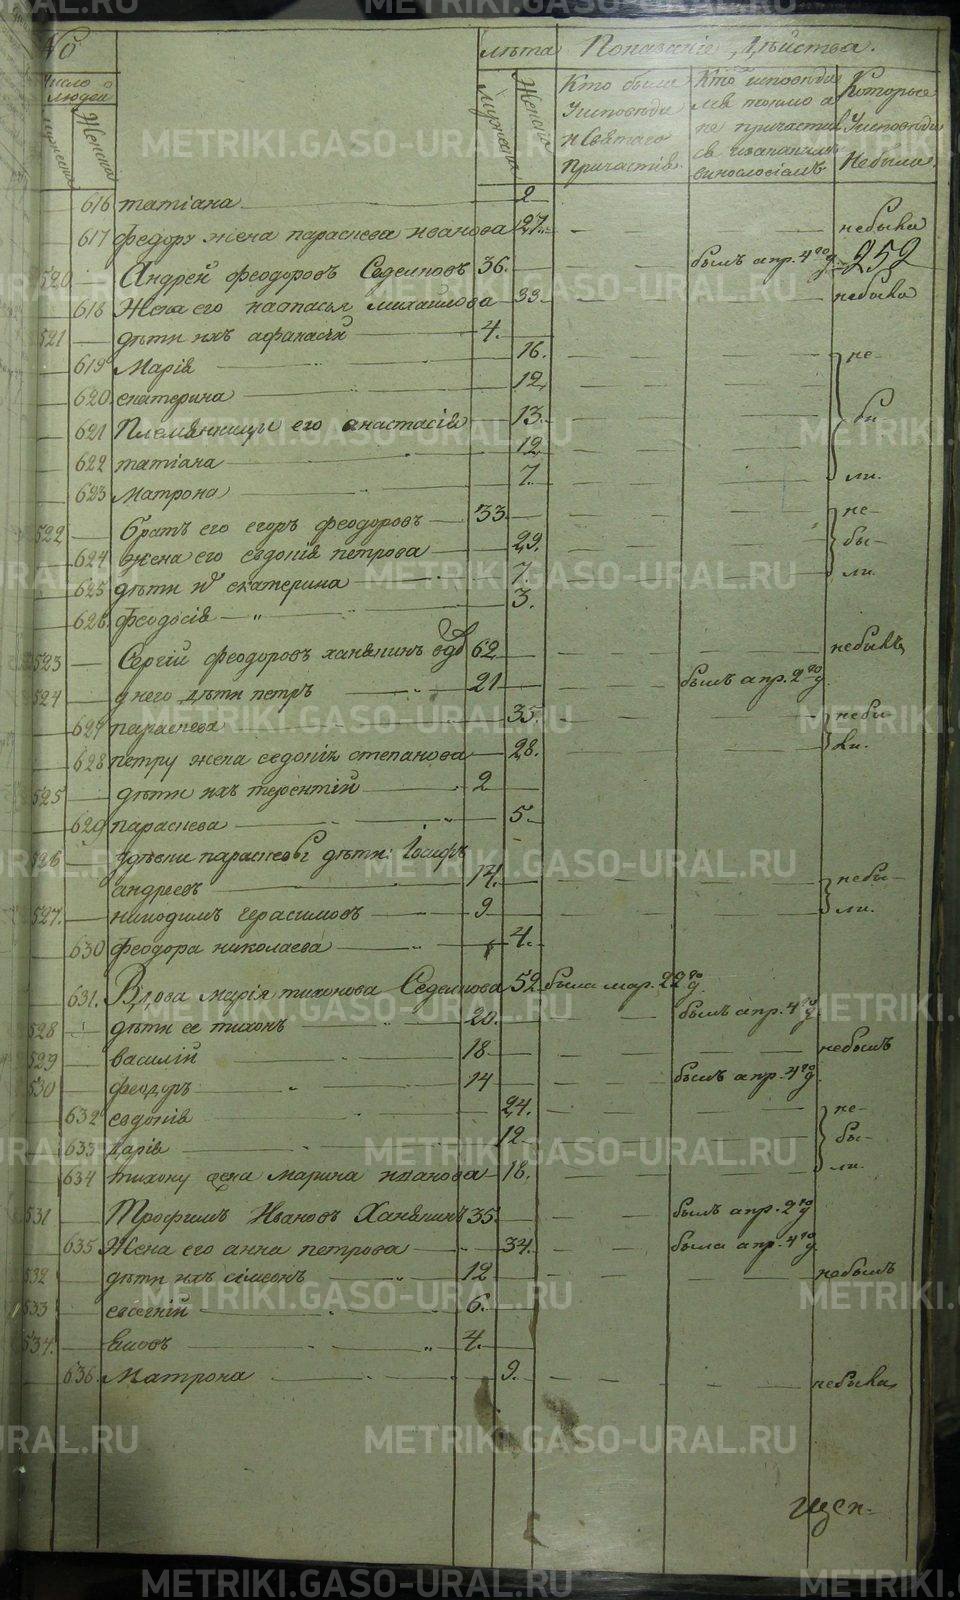 № лѣта Показанiе Дѣйства.
Число людей
мужеска Женска мужеска Женска
Кто были Исповѣди и Святаго Причастiя
Кто исповѣдались токмо а не причастились
Которые Исповѣди Небыли
616 татiана 2
617 федору жена параскева иванова 27. небыла
520 Андрей феодоровъ Седелновъ 36. былъ апр. 4го д 252
618 Жена его настасья михайлова 33 небыла
521 дѣти ихъ афанасiй 4.
619 Марiя 16. не-
620 екатерина 12
621 Племянницы его анастасiя 13. бы
622 татiана 12
623 матрона 7. ли.
522 братъ его егоръ феодоровъ 33. не-
624 жена его евдокiя петрова 29. бы-
625 дѣти их екатерина 7. ли.
626 феодосiя 3.
523 Сергiй феодоровъ ханянинъ вдв 62 небылъ
524 у него дѣти петръ 21 былъ апр. 2го д
627 параскева 35. небы-
628 петру жена евдокiя степанова 28. ли.
525 дѣти ихъ терентiй 2
629 параскева 5.
526 у дѣвки параскевы дѣти: Iосифъ
андреевъ 14. небы-
527. никодимъ герасимовъ 9 ли.
630 феодора николаева 4.
631. Вдова марiя тихонова Седелнова 52 была мар. 22го д.
528 дѣти ее тихонъ 20. былъ апр. 4го д
529 василiй 18. небылъ
530 феодоръ 14 былъ апр. 4го д
632 евдокiя 24. не-
633 дарiя 12 бы-
634 тихону жена марина иванова 18. ли.
531 Трофимъ Ивановъ Ханянинъ 35. былъ апр. 2го д
635 Жена его анна петрова 34. была апр. 4го д
532 дѣти ихъ симеонъ 12 небылъ
533 евгенiй 6.
534. яковъ 4.
636. Матрона 9. небыла
щен-
METRIKI.GASO-URAL.RU